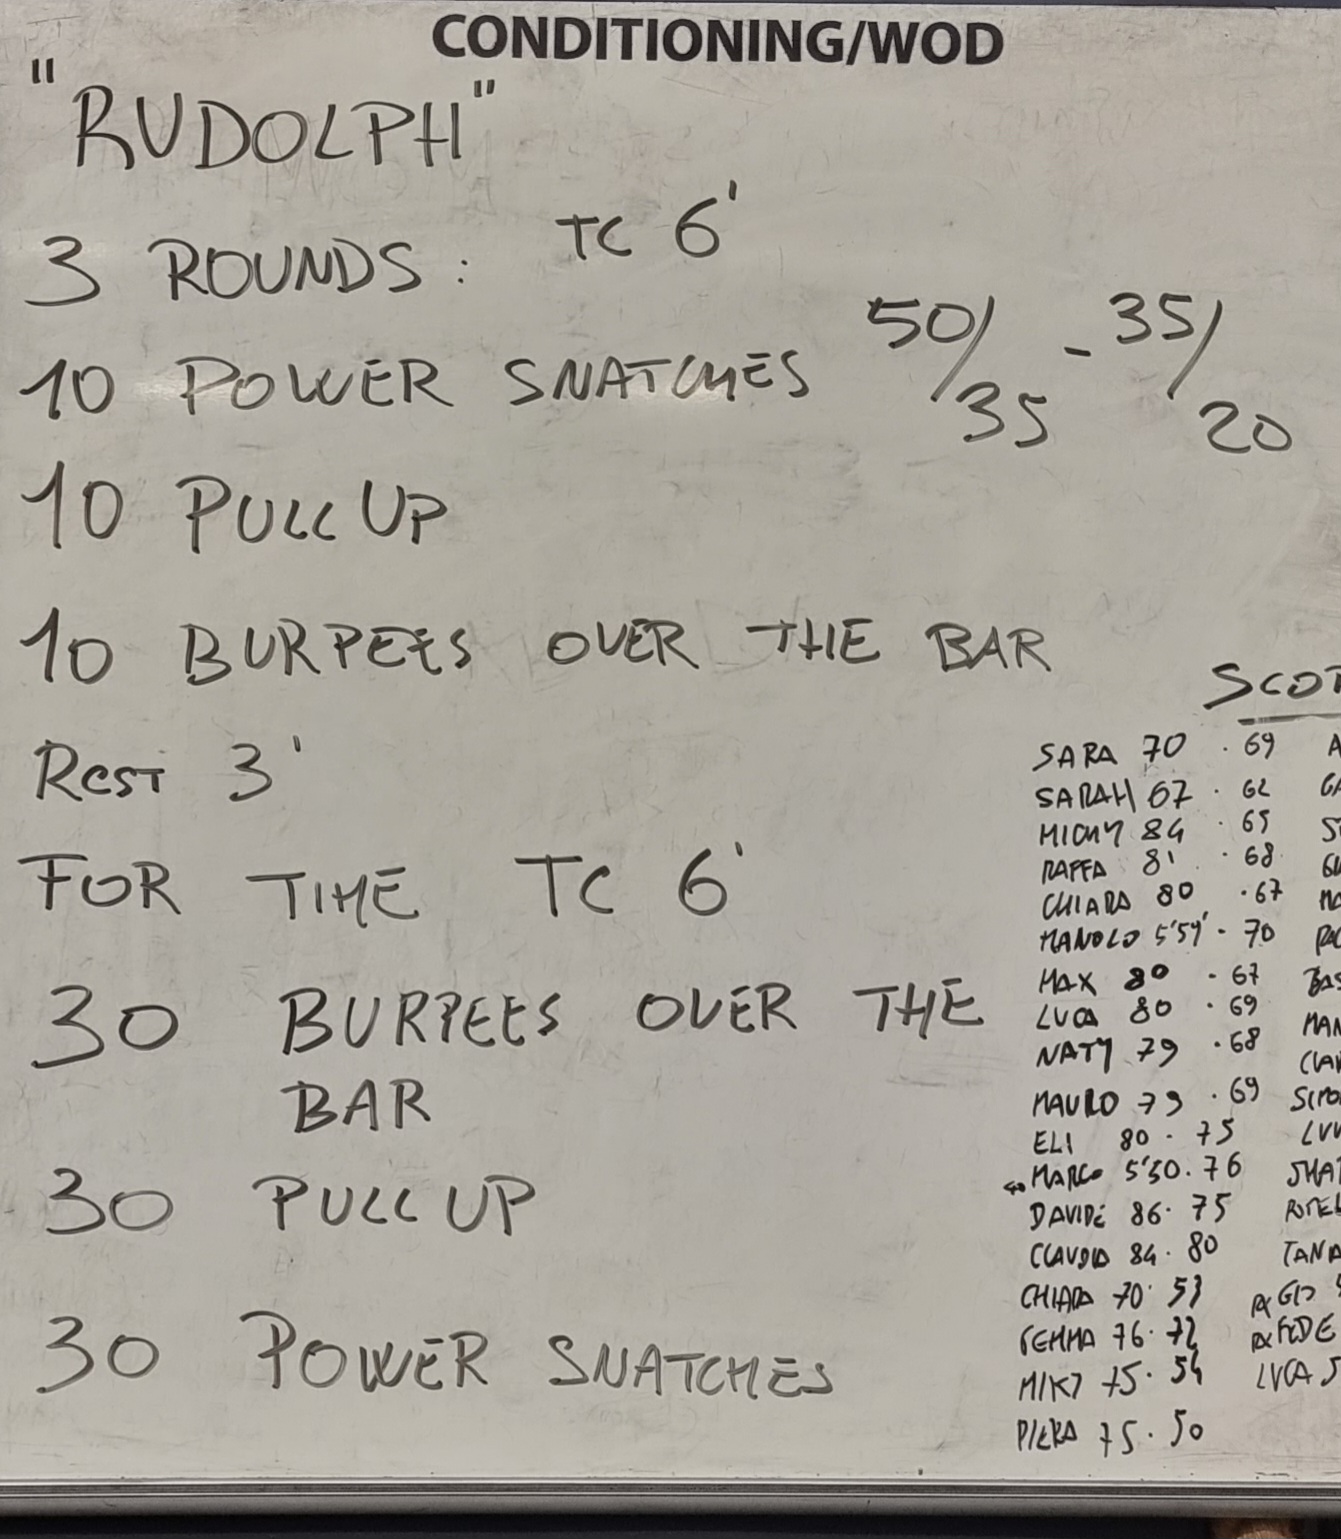 CONDITIONING/WOD
"RUDOLPH"
3 ROUNDS: TC 6'
10 POWER SNATCHES 50/35 - 35/20
10 PULL UP
10 BURPEES OVER THE BAR
REST 3'
FOR TIME TC 6'
30 BURPEES OVER THE
BAR
30 PULL UP
30 POWER SNATCHES
SARA 70 · 69
SARAH 67 · 62
MICHY 84 · 65
RAFFA 81 · 68
CHIARA 80 · 67
MANOLO 5'59' · 70
MAX 80 · 67
LUCA 80 · 69
NATY 79 · 68
MAURO 79 · 69
ELI 80 · 75
MARCO 5'50 · 76
DAVIDE 86 · 75
CLAUDIA 84 · 80
CHIARA 70 · 53
GEMMA 76 · 72
MIKI 75 · 54
PIERA 75 · 50
RX FEDE
LUCA